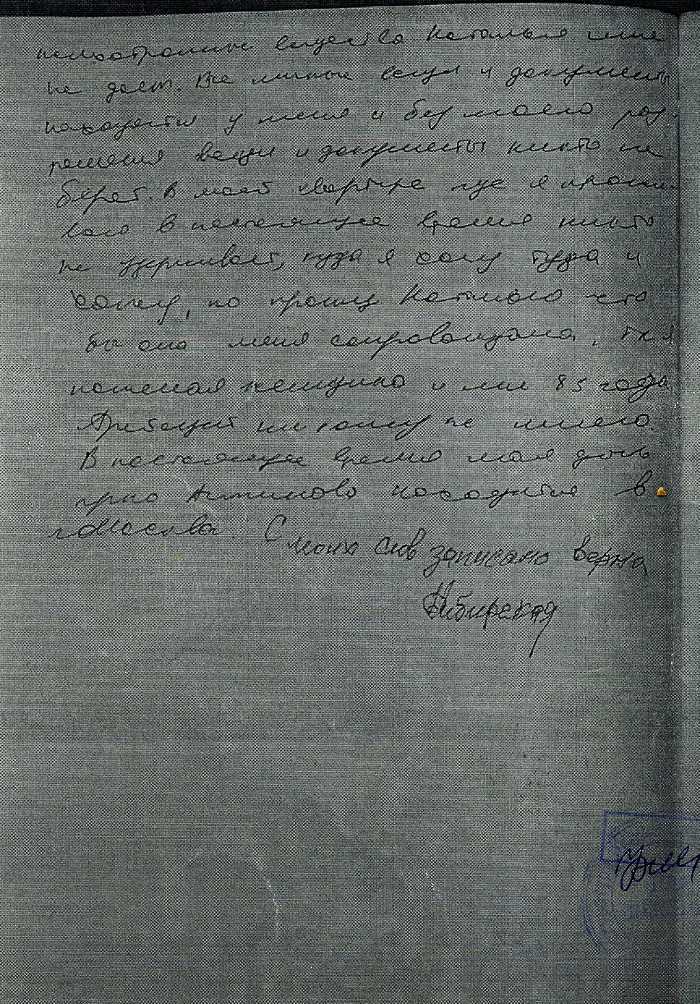 психотропные вещества Наталья мне
не дает. Все личные вещи и документы
находятся у меня и без моего раз-
решения вещи и документы никто не
берет. В моей квартире где я прожи-
ваю в настоящее время никто
не удерживает, куда я хочу туда и
хожу, но прошу Наталью что
бы она меня сопровождала, т.к. я
пожилая женщина и мне 85 года
Претензий ни кому не имею.
В настоящее время моя дочь
находится в
г. Москва. С моих слов записано верна